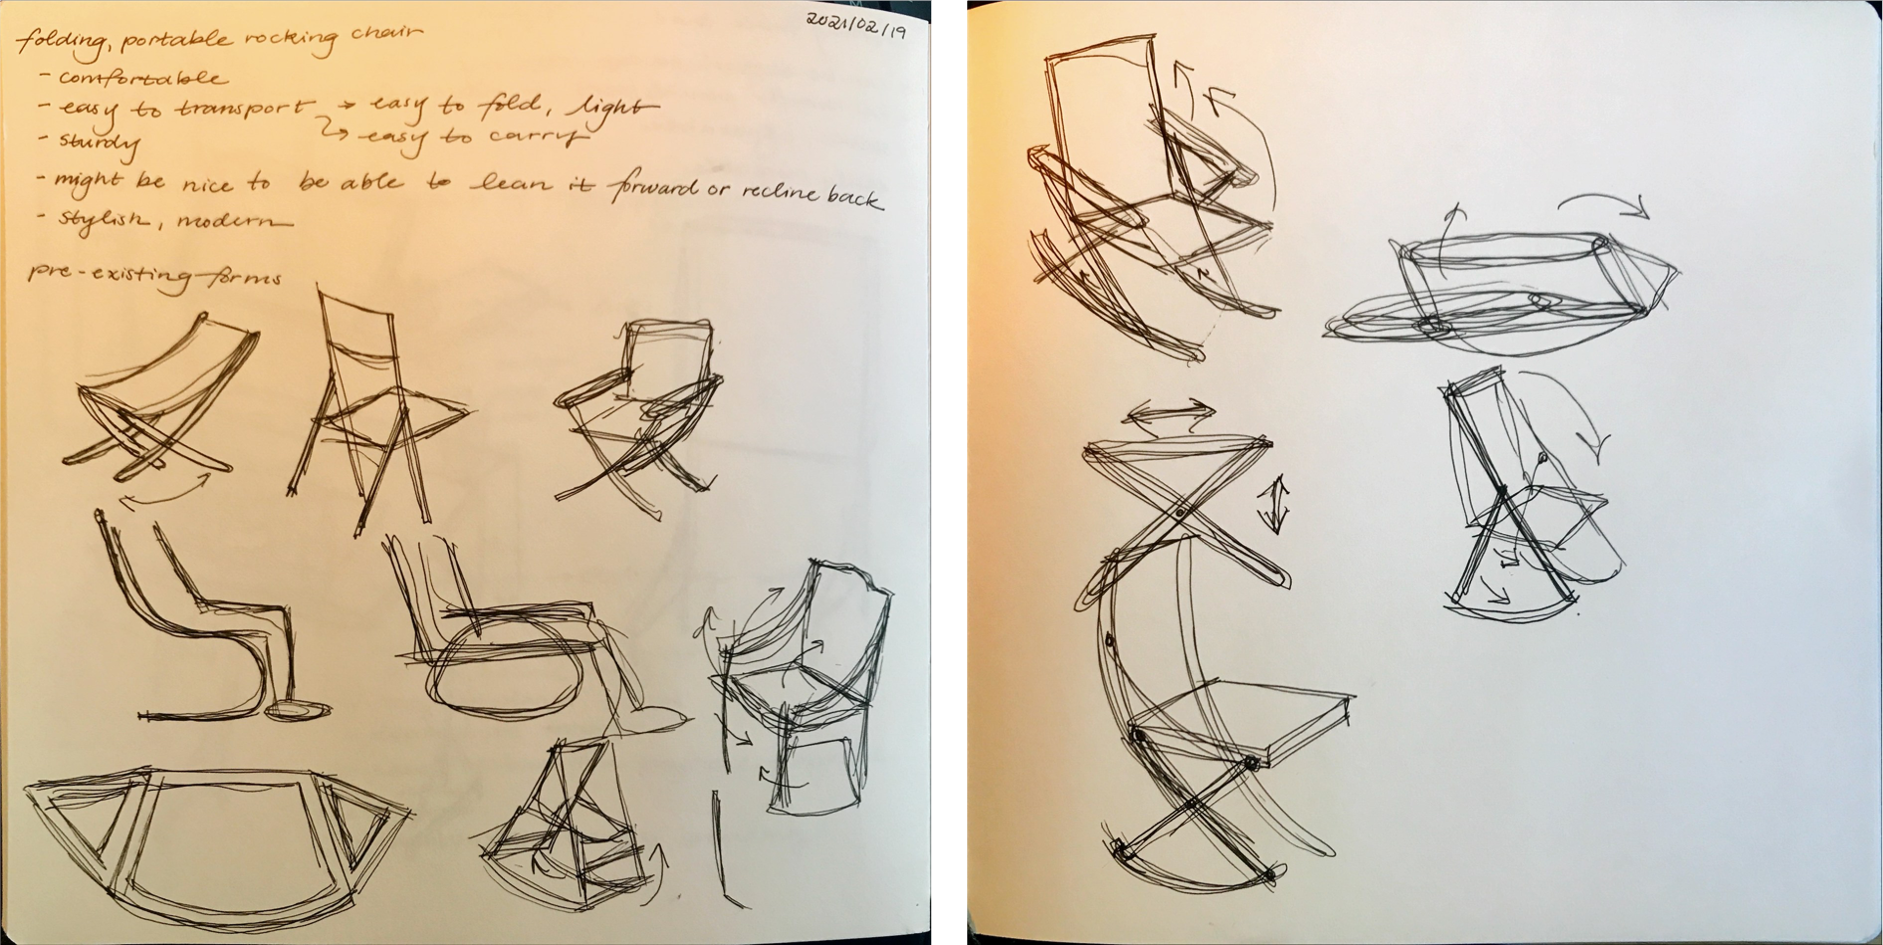 2021/02/19
folding, portable rocking chair
- comfortable
- easy to transport → easy to fold, light
↳ easy to carry
- sturdy
- might be nice to be able to lean it forward or recline back
- stylish, modern
pre-existing forms